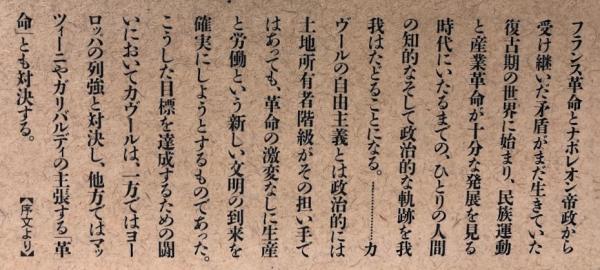 フランス革命とナポレオン帝政から
受け継いだ矛盾がまだ生きていた
復古期の世界に始まり、民族運動
と産業革命が十分な発展を見る
時代にいたるまでの、ひとりの人間
の知的なそして政治的な軌跡を我
我はたどることになる。…………カ
ヴールの自由主義とは政治的には
土地所有者階級がその担い手で
はあっても、革命の激変なしに生産
と労働という新しい文明の到来を
確実にしようとするものであった。
こうした目標を達成するための闘
いにおいてカヴールは、一方ではヨー
ロッパの列強と対決し、他方ではマッ
ツィーニやガリバルディの主張する「革
命」とも対決する。【序文より】